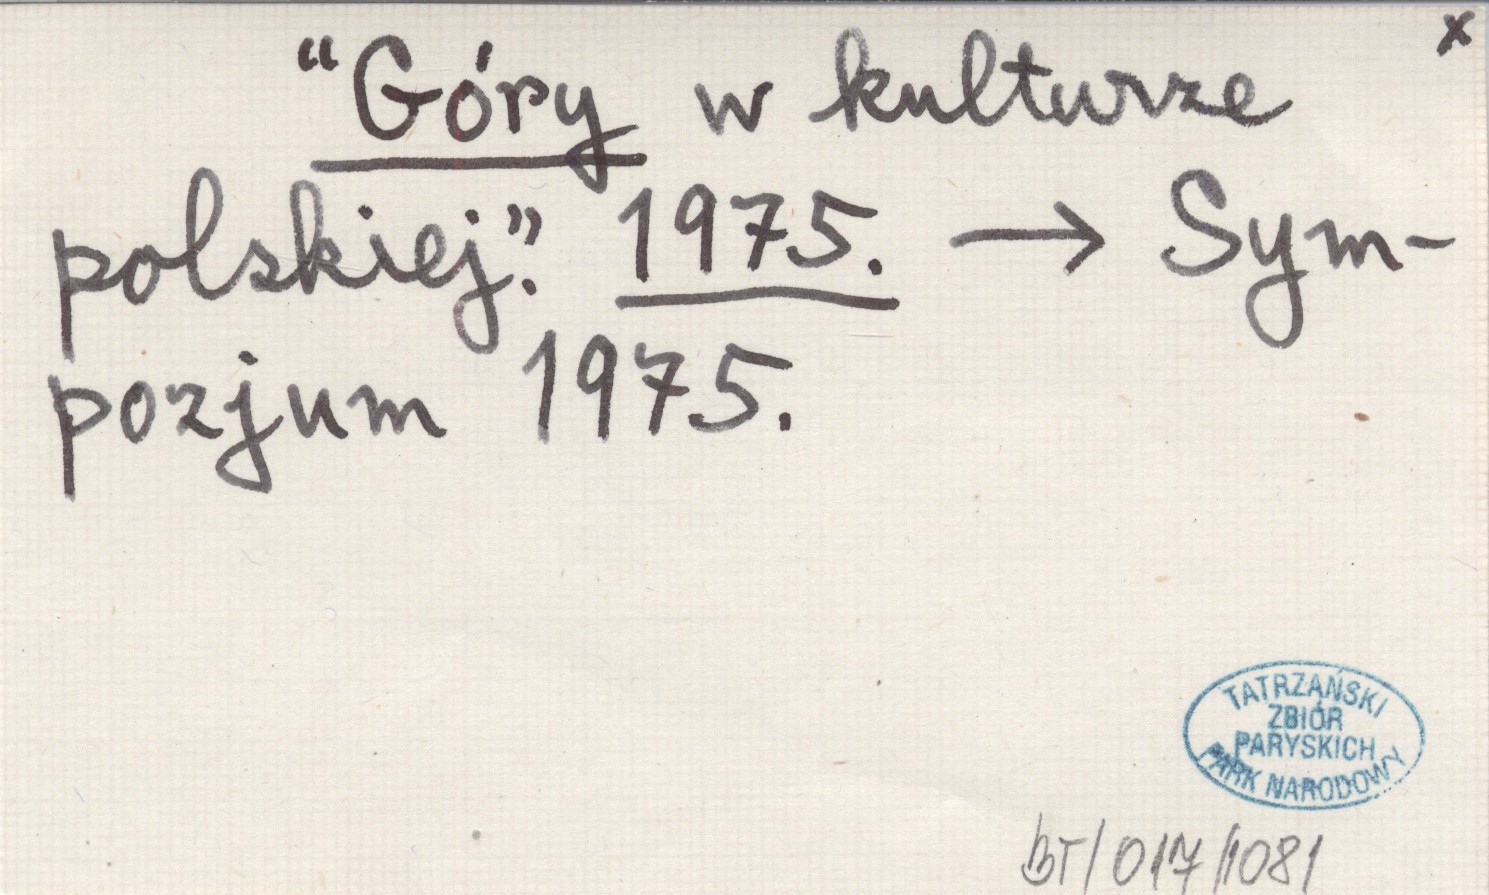 x
“Góry w kulturze
polskiej”. 1975. → Sym-
pozjum 1975.
TATRZAŃSKI
ZBIÓR
PARYSKICH
PARK NARODOWY
BT/017/1081